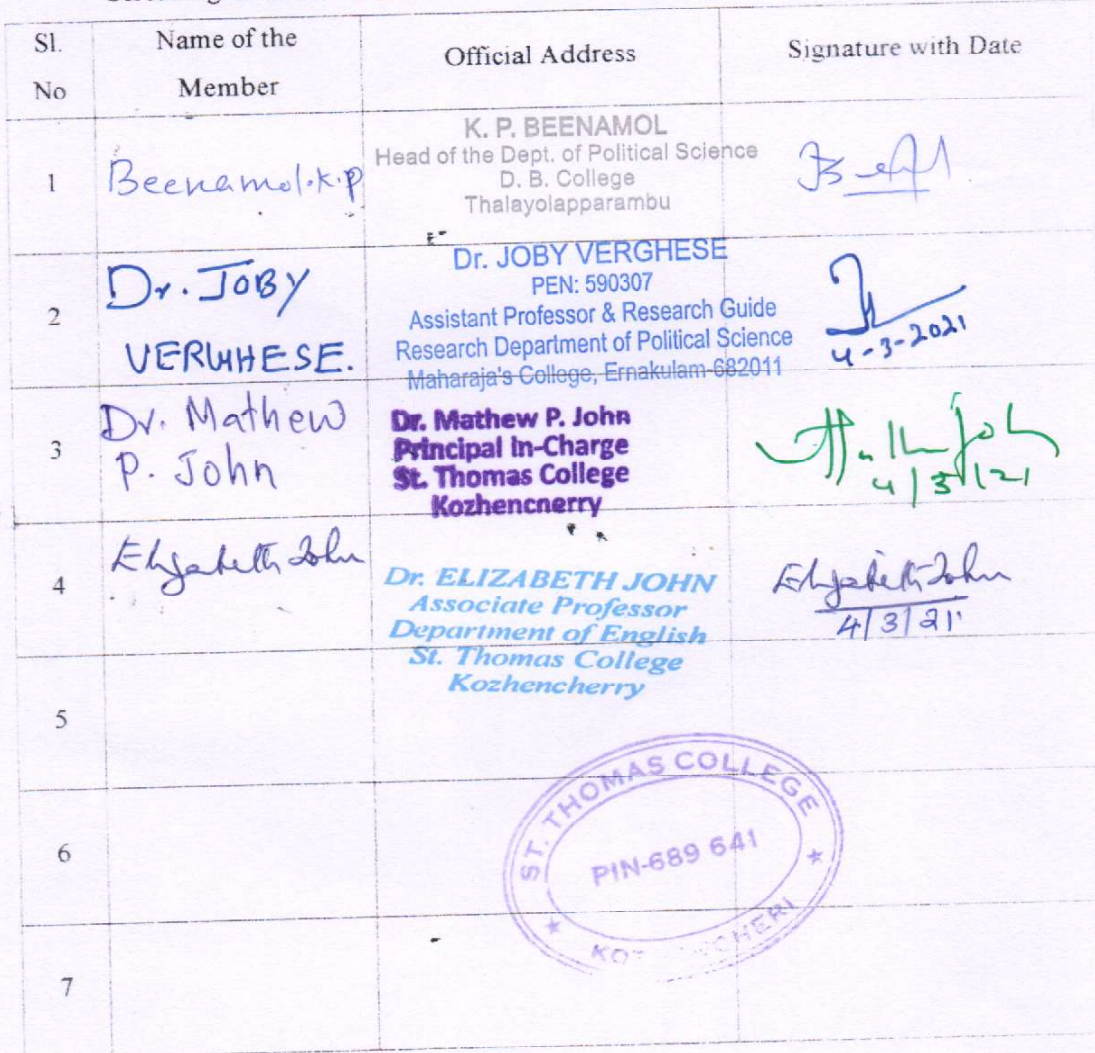 Sl.
No
Name of the
Member
Official Address
Signature with Date
1
Beenamol.k.p
K. P. BEENAMOL
Head of the Dept. of Political Science
D. B. College
Thalayolapparambu
2
Dr. JOBY
VERGHESE.
Dr. JOBY VERGHESE
PEN: 590307
Assistant Professor & Research Guide
Research Department of Political Science
Maharaja's College, Ernakulam-682011
4-3-2021
3
Dr. Mathew
P. John
Dr. Mathew P. John
Principal In-Charge
St. Thomas College
Kozhencherry
4/3/21
4
Elizabeth John
Dr. ELIZABETH JOHN
Associate Professor
Department of English
St. Thomas College
Kozhencherry
Elizabeth John
4/3/21
5
6
ST. THOMAS COLLEGE
PIN-689 641
7